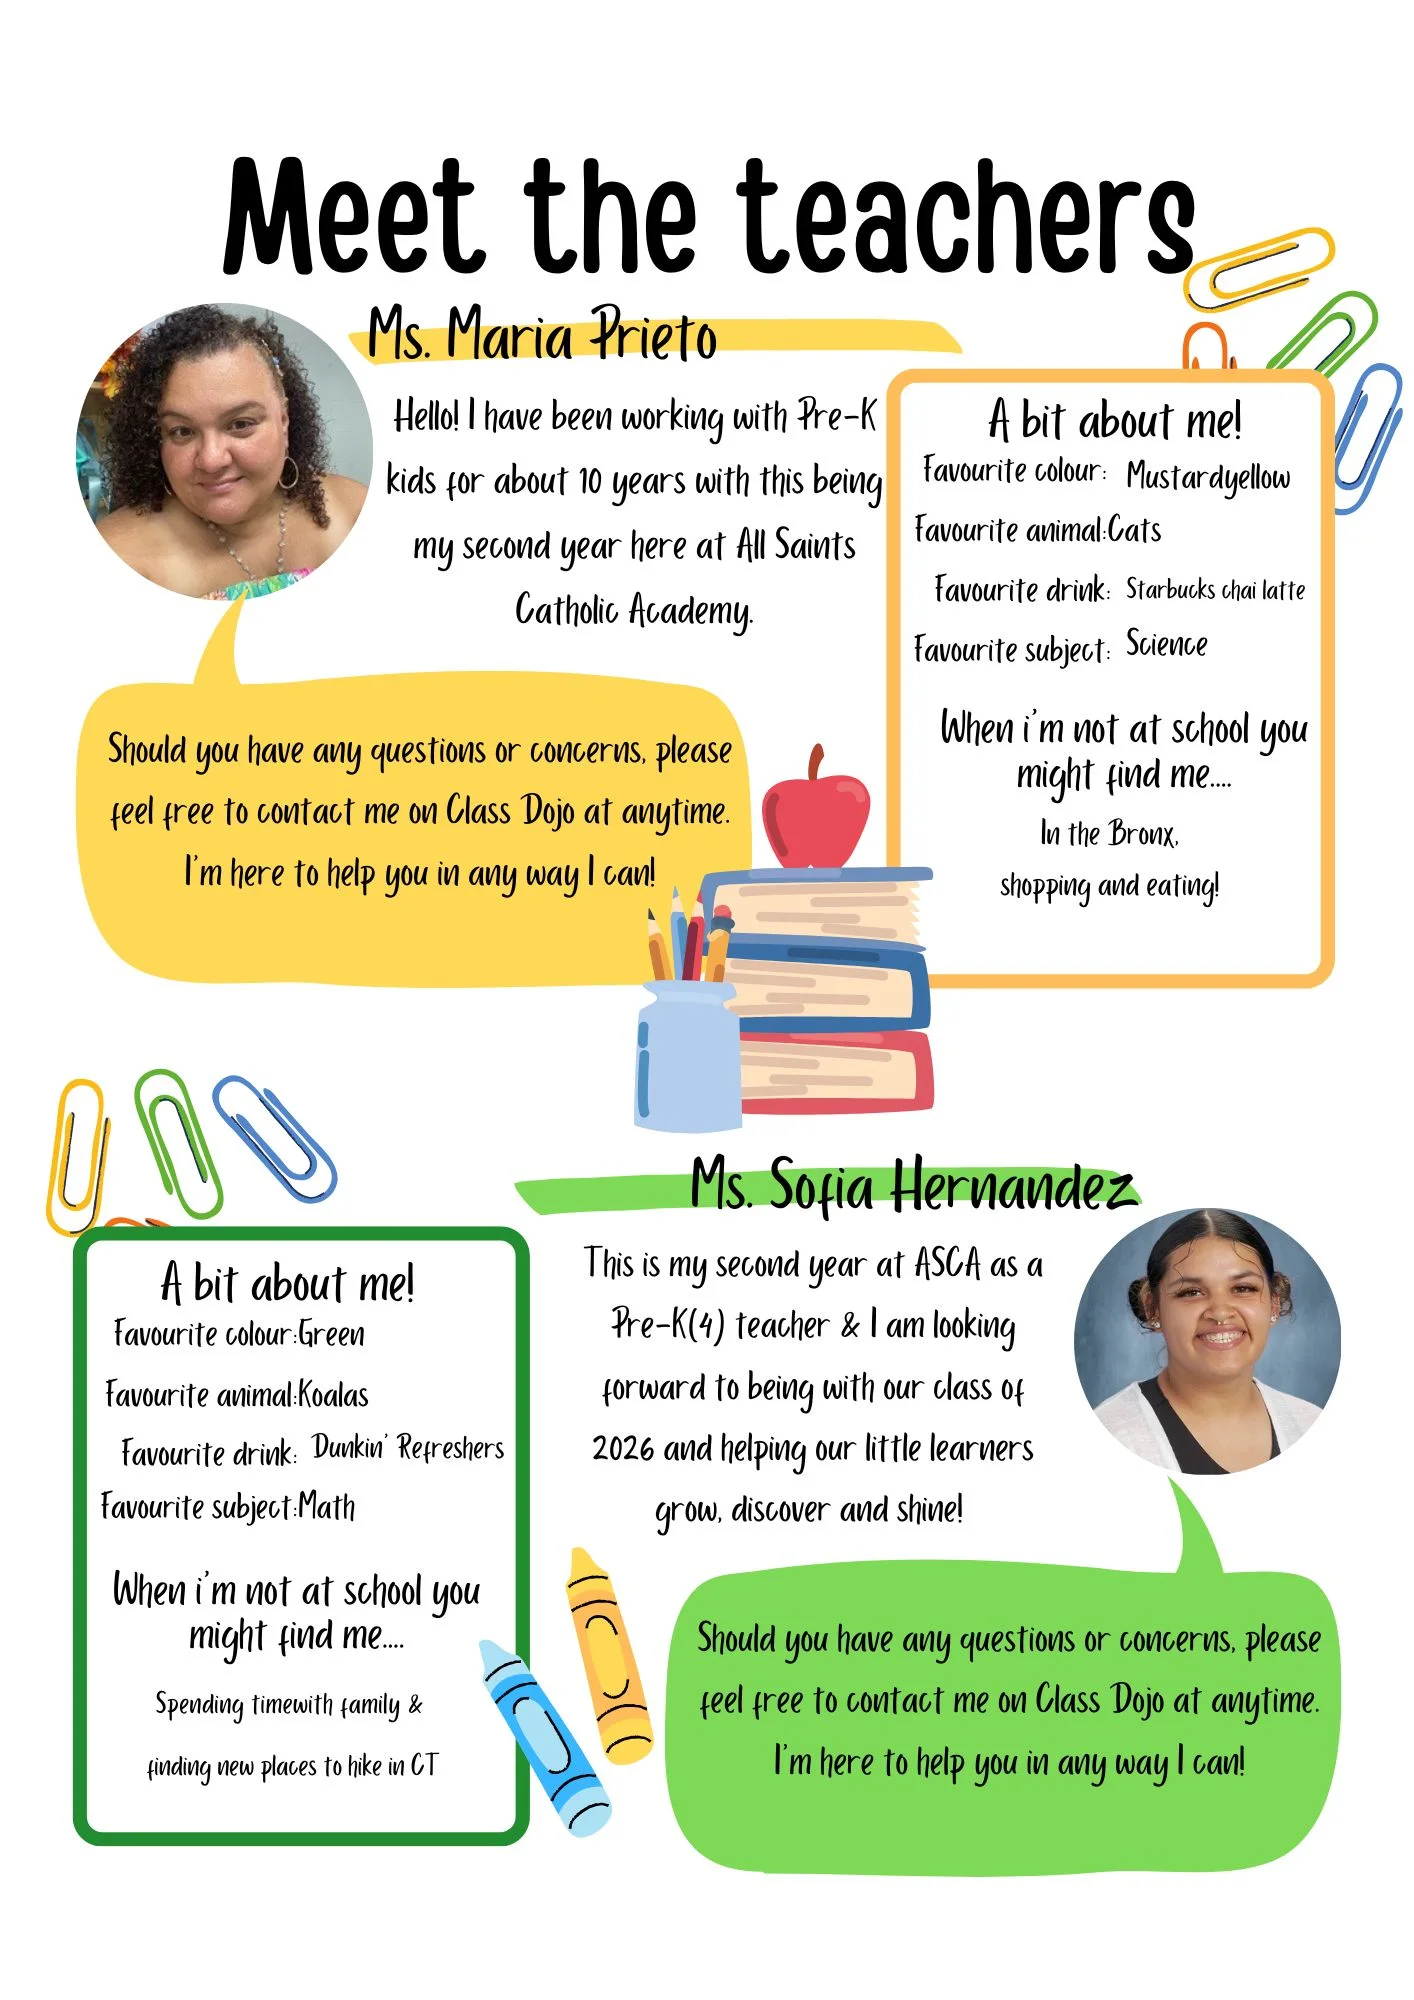 Meet the teachers
Ms. Maria Prieto
Hello! I have been working with Pre-K
kids for about 10 years with this being
my second year here at All Saints
Catholic Academy.
A bit about me!
Favourite colour: Mustardyellow
Favourite animal:Cats
Favourite drink: Starbucks chai latte
Favourite subject: Science
When i'm not at school you
might find me....
In the Bronx,
shopping and eating!
Should you have any questions or concerns, please
feel free to contact me on Class Dojo at anytime.
I'm here to help you in any way I can!
Ms. Sofia Hernandez
This is my second year at ASCA as a
Pre-K(4) teacher & I am looking
forward to being with our class of
2026 and helping our little learners
grow, discover and shine!
A bit about me!
Favourite colour:Green
Favourite animal:Koalas
Favourite drink: Dunkin' Refreshers
Favourite subject:Math
When i'm not at school you
might find me....
Spending timewith family &
finding new places to hike in CT
Should you have any questions or concerns, please
feel free to contact me on Class Dojo at anytime.
I'm here to help you in any way I can!